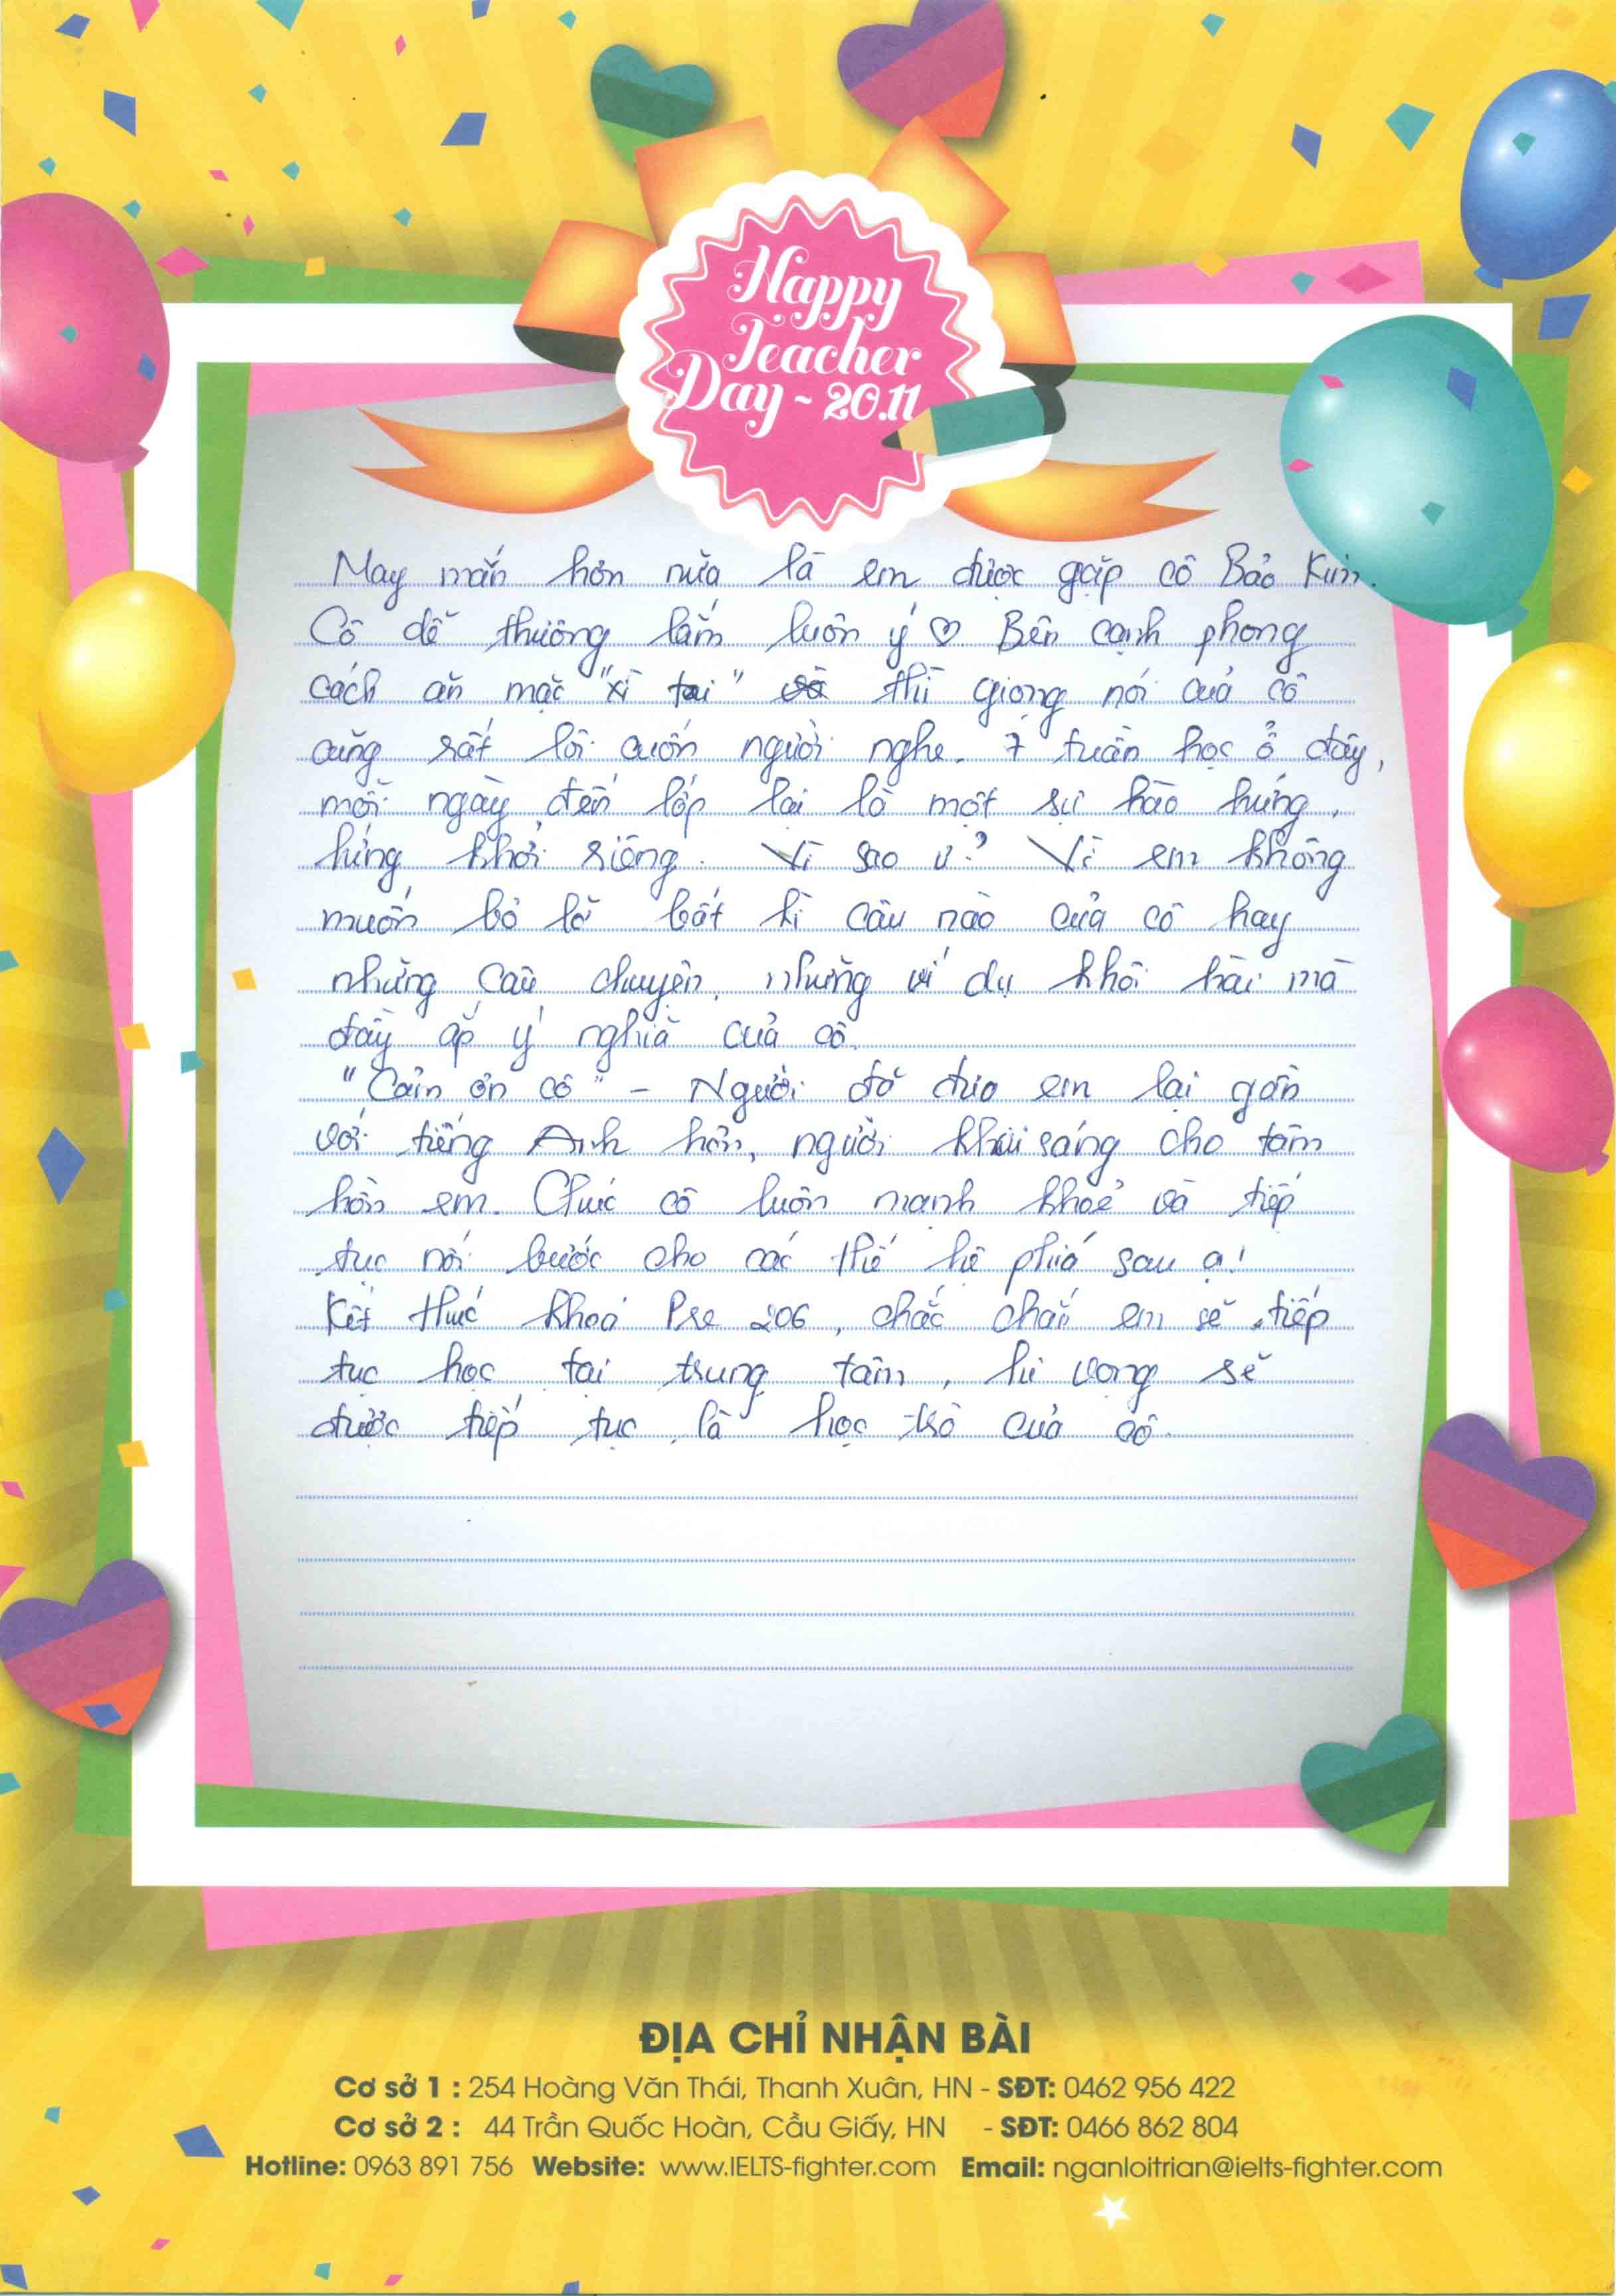 Happy
Teacher
Day - 20.11
May mắn hơn nữa là em được gặp cô Bảo Kim.
Cô dễ thương lắm luôn ý ♡. Bên cạnh phong
cách ăn mặc "xì tai" thì giọng nói của cô
cũng rất lôi cuốn người nghe. 7 tuần học ở đây,
mỗi ngày đến lớp lại là một sự hào hứng,
hứng khởi riêng. Vì sao ư? Vì em không
muốn bỏ lỡ bất kì câu nào của cô hay
những câu chuyện, những ví dụ khôi hài mà
đầy ắp ý nghĩa của cô.
"Cảm ơn cô" - Người đã đưa em lại gần
với tiếng Anh hơn, người khai sáng cho tâm
hồn em. Chúc cô luôn mạnh khoẻ và tiếp
tục nối bước cho các thế hệ phía sau ạ!
Kết thúc khoá Pre 206, chắc chắn em sẽ tiếp
tục học tại trung tâm, hi vọng sẽ
được tiếp tục là học trò của cô.
ĐỊA CHỈ NHẬN BÀI
Cơ sở 1 : 254 Hoàng Văn Thái, Thanh Xuân, HN - SĐT: 0462 956 422
Cơ sở 2 : 44 Trần Quốc Hoàn, Cầu Giấy, HN - SĐT: 0466 862 804
Hotline: 0963 891 756 Website: www.IELTS-fighter.com Email: nganloitrian@ielts-fighter.com